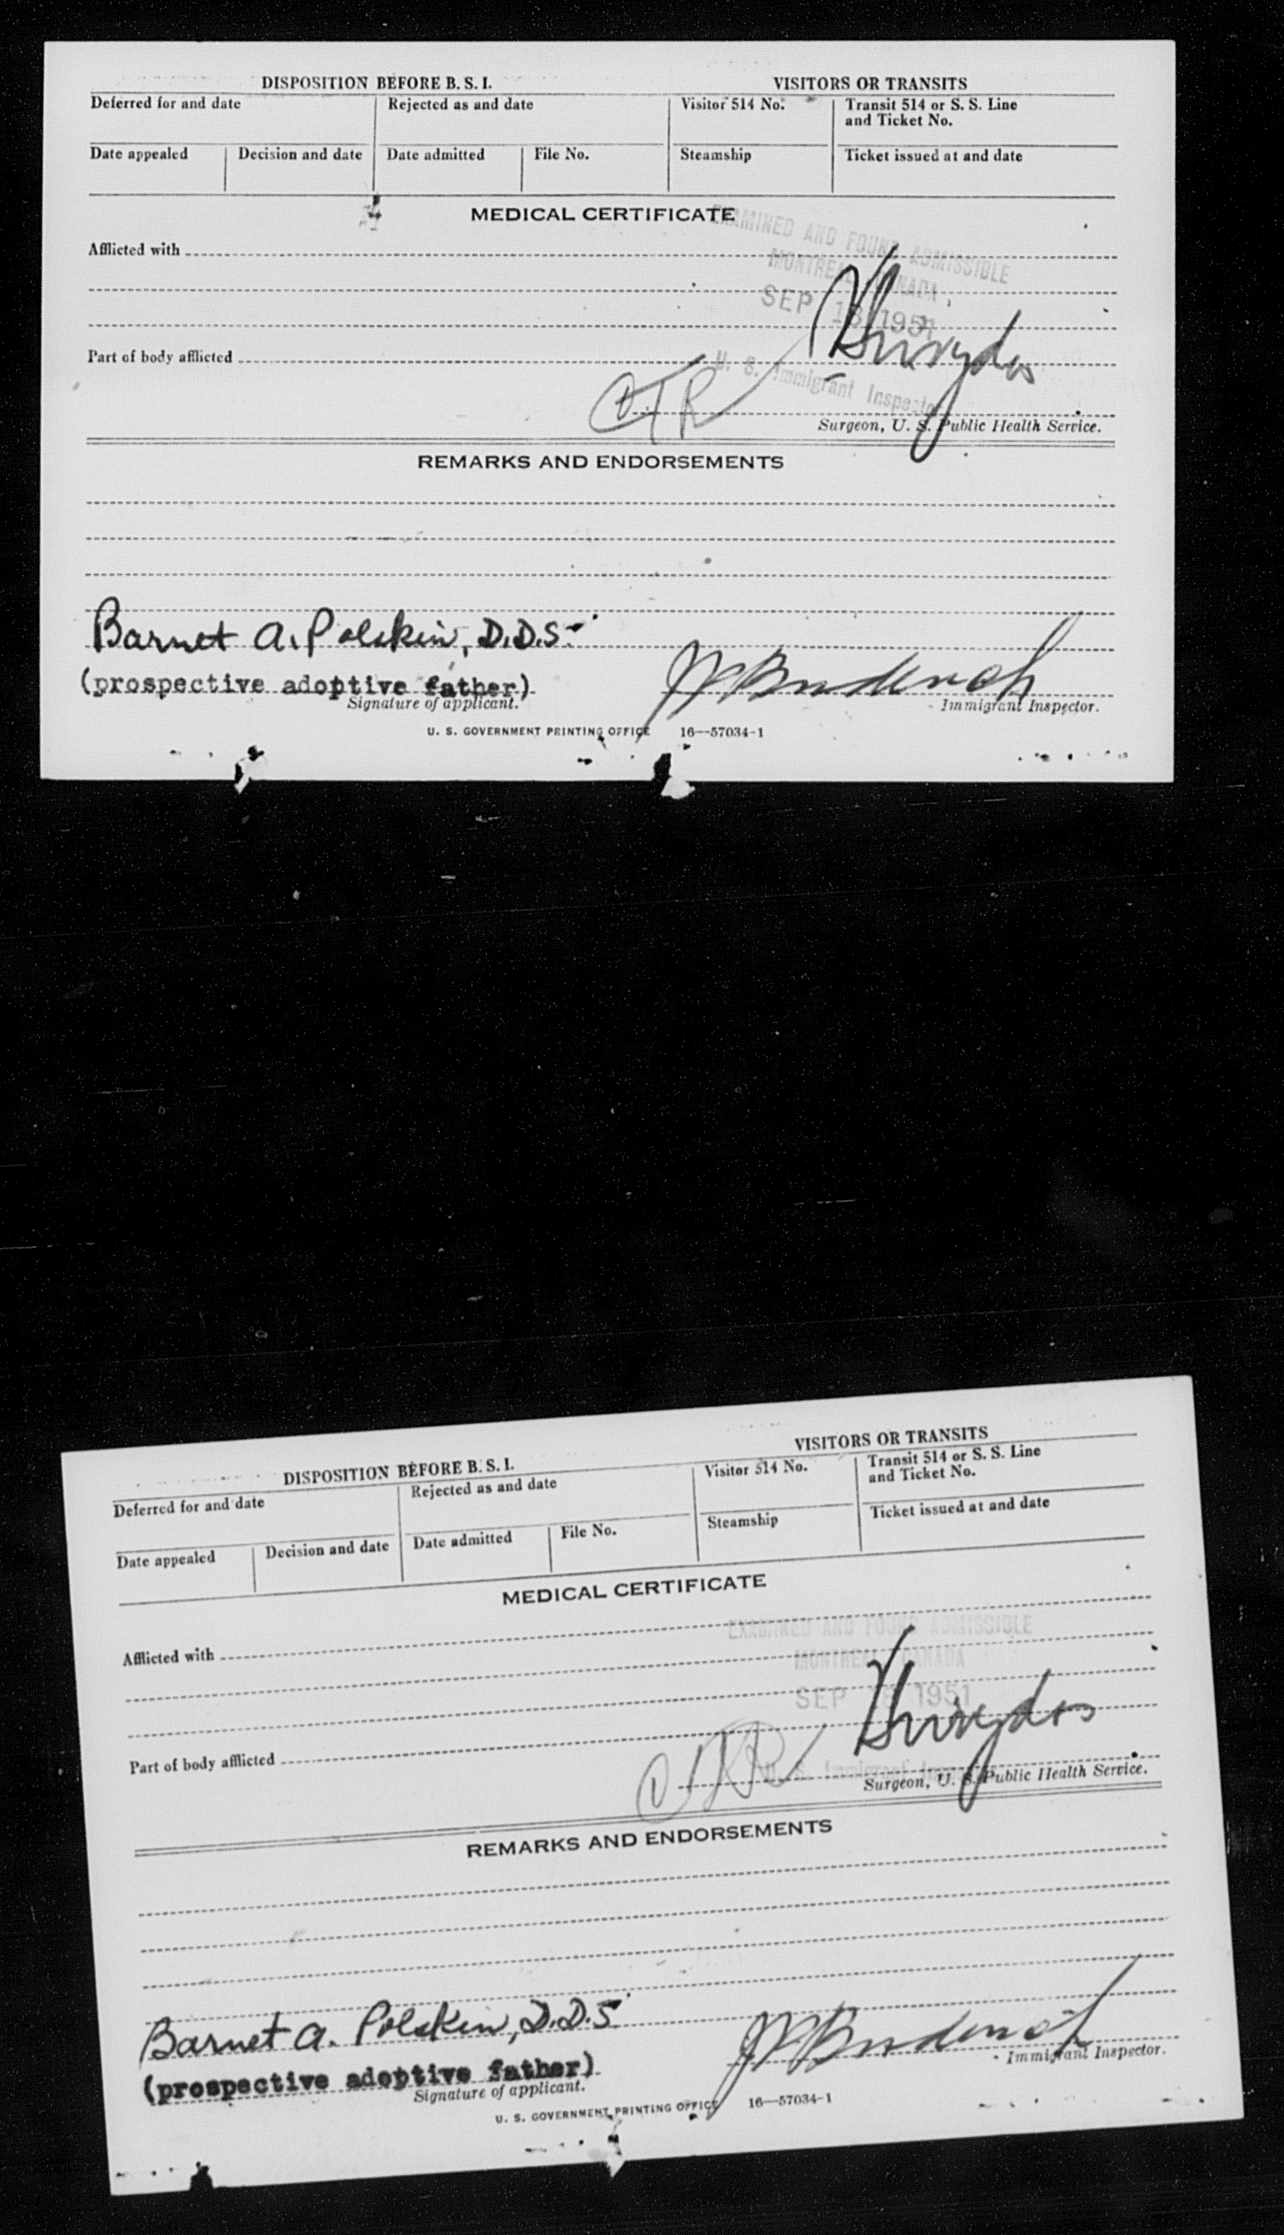 DISPOSITION BEFORE B. S. I.
VISITORS OR TRANSITS
Deferred for and date
Rejected as and date
Visitor 514 No.
Transit 514 or S. S. Line
and Ticket No.
Date appealed
Decision and date
Date admitted
File No.
Steamship
Ticket issued at and date
MEDICAL CERTIFICATE
EXAMINED AND FOUND ADMISSIBLE
MONTREAL, CANADA
Afflicted with
SEP 18 1951
Part of body afflicted
U. S. Immigrant Inspector
Surgeon, U. S. Public Health Service.
REMARKS AND ENDORSEMENTS
Barnet A. Polskin, D.D.S.
(prospective adoptive father)
Signature of applicant.
Immigrant Inspector.
U. S. GOVERNMENT PRINTING OFFICE 16—57034-1
DISPOSITION BEFORE B. S. I.
VISITORS OR TRANSITS
Deferred for and date
Rejected as and date
Visitor 514 No.
Transit 514 or S. S. Line
and Ticket No.
Date appealed
Decision and date
Date admitted
File No.
Steamship
Ticket issued at and date
MEDICAL CERTIFICATE
EXAMINED AND FOUND ADMISSIBLE
MONTREAL, CANADA
Afflicted with
SEP 18 1951
Part of body afflicted
U. S. Immigrant
Surgeon, U. S. Public Health Service.
REMARKS AND ENDORSEMENTS
Barnet A. Polskin, D.D.S.
(prospective adoptive father)
Signature of applicant.
Immigrant Inspector.
U. S. GOVERNMENT PRINTING OFFICE 16—57034-1